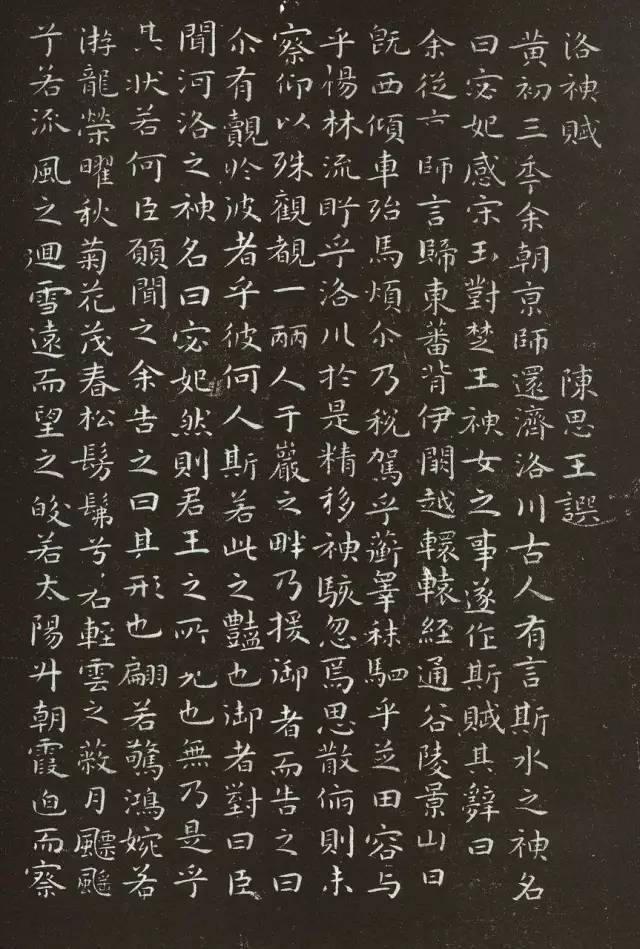 洛神賦 陳思王譔
黄初三秊余朝亰師還濟洛川古人有言斯水之神名
曰宓妃感宋玉對楚王神女之事遂作斯賦其辭曰
余從亰師言歸東蕃背伊闕越轘轅經通谷陵景山日
既西傾車殆馬煩尒乃税駕乎蘅皋秣駟乎芝田容与
乎楊林流眄乎洛川於是精移神駭忽焉思散俯則未
察仰以殊觀覩一麗人于巖之畔乃援御者而告之曰
尒有覿於彼者乎彼何人斯若此之豔也御者對曰臣
聞河洛之神名曰宓妃然則君王之所見也無乃是乎
其狀若何臣願聞之余告之曰其形也翩若驚鴻婉若
游龍榮曜秋菊花茂春松髣髴兮若輕雲之蔽月飄颻
兮若流風之迴雪遠而望之皎若太陽升朝霞迫而察